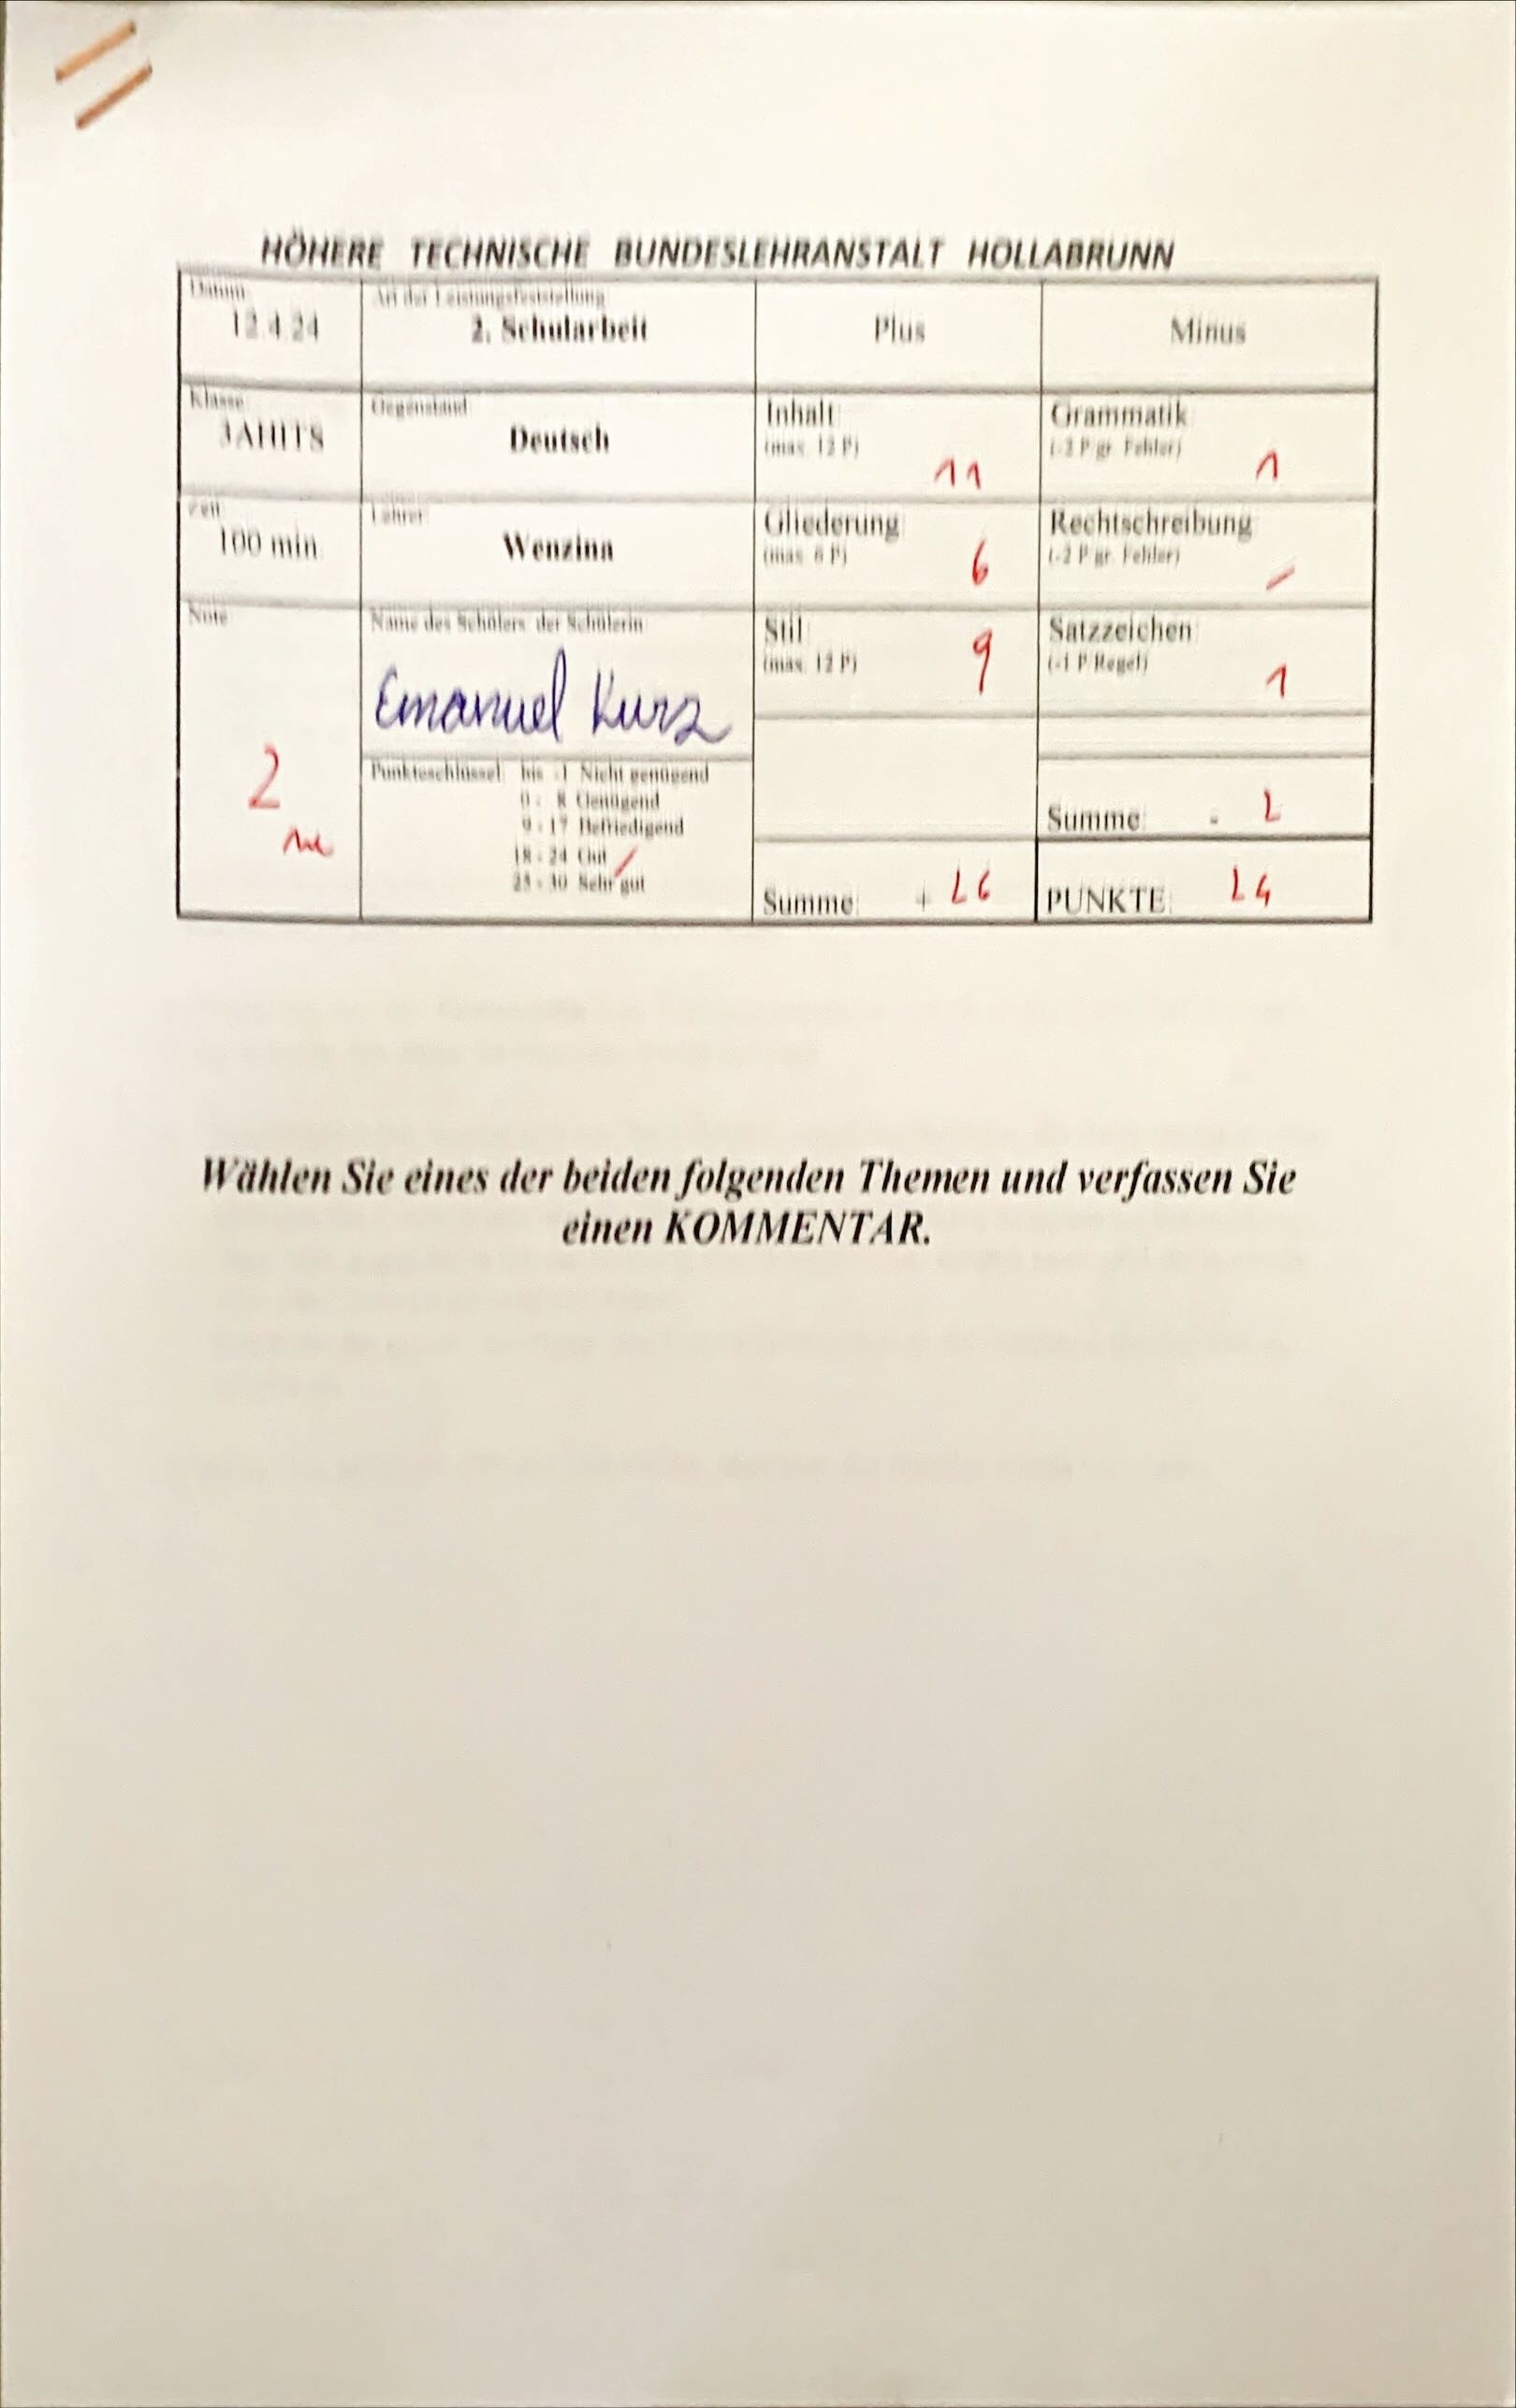 HÖHERE TECHNISCHE BUNDESLEHRANSTALT HOLLABRUNN
Datum
12.4.24
Art der Leistungsfeststellung
2. Schularbeit
Plus
Minus
Klasse
3AHITS
Gegenstand
Deutsch
Inhalt:
(max. 12 P)
11
Grammatik
(-2 P gr. Fehler)
1
Zeit
100 min.
Lehrer
Wenzina
Gliederung:
(max. 6 P)
6
Rechtschreibung
(-2 P gr. Fehler)
Note
2
Name des Schülers der Schülerin
Emanuel Kurz
Stil:
(max. 12 P)
9
Satzzeichen:
(-1 P/Regel)
1
Punkteschlüssel: bis -1 Nicht genügend
0 - 8 Genügend
9 - 17 Befriedigend
18 - 24 Gut
25 - 30 Sehr gut
Summe: - 2
Summe: + 26
PUNKTE: 24
Wählen Sie eines der beiden folgenden Themen und verfassen Sie
einen KOMMENTAR.